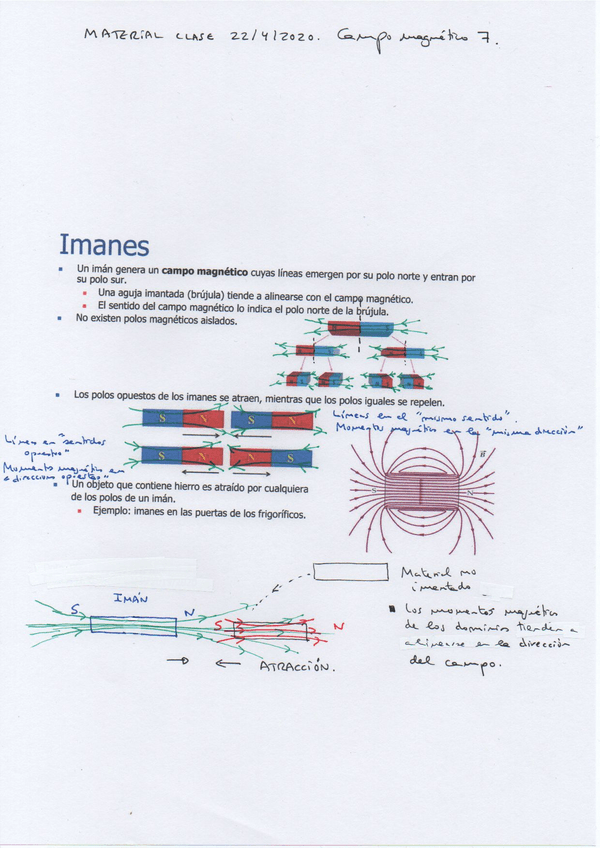 MATERIAL CLASE 22/4/2020. Campo magnético 7.
Imanes
Un imán genera un campo magnético cuyas líneas emergen por su polo norte y entran por
su polo sur.
Una aguja imantada (brújula) tiende a alinearse con el campo magnético.
El sentido del campo magnético lo indica el polo norte de la brújula.
No existen polos magnéticos aislados.
Los polos opuestos de los imanes se atraen, mientras que los polos iguales se repelen.
S N S N
Líneas en el "mismo sentido".
Momentos magnético en la "misma dirección"
Líneas en "sentidos
opuesto"
S N N S
Momento magnético en
"direcciones opuestas"
Un objeto que contiene hierro es atraído por cualquiera
de los polos de un imán.
Ejemplo: imanes en las puertas de los frigoríficos.
B
S N
Material no
imantado
IMÁN
S N
S N
Los momentos magnético
de los dominios tienden a
alinearse en la dirección
del campo.
ATRACCIÓN.